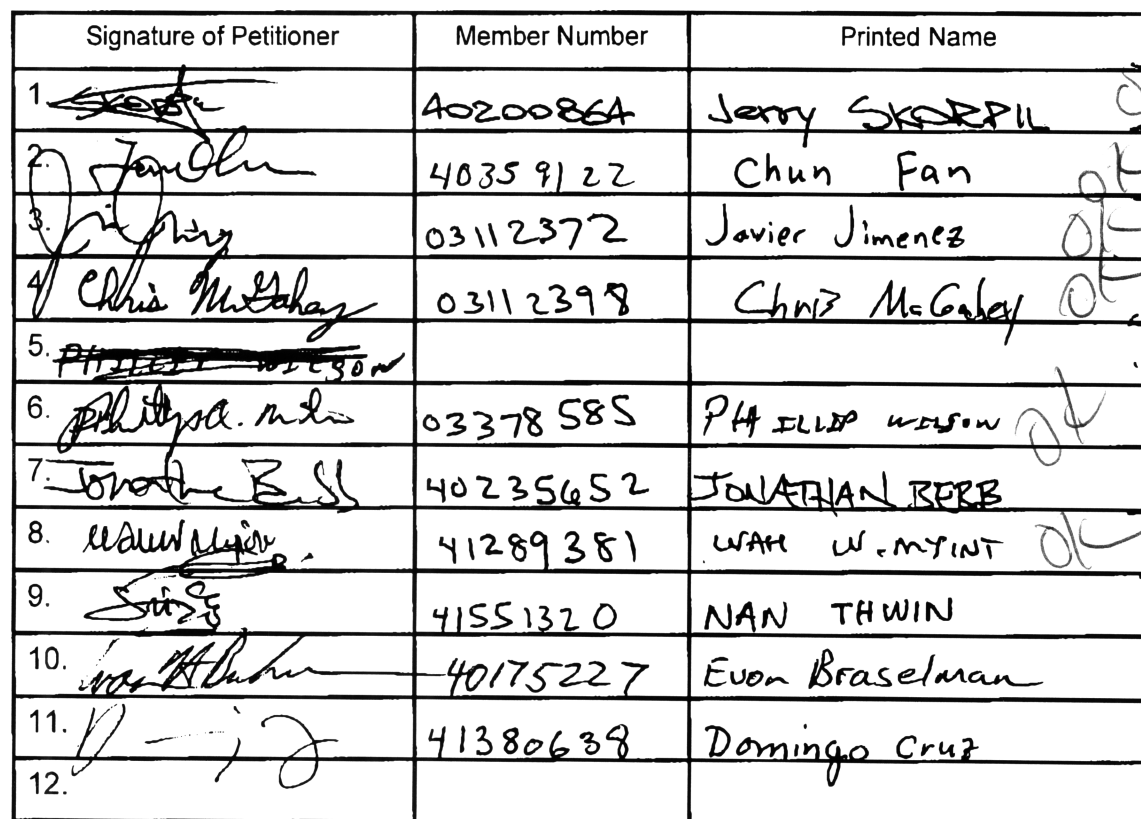 Signature of Petitioner Member Number Printed Name
1 Skorpil 40200864 Jerry SKORPIL
2. 40359122 Chun Fan OK
3. 03112372 Javier Jimenez OK
4 Chris McGahey 03112398 Chris McGahey OK
5. PHILLIP WILSON
6. 03378585 PHILLIP WILSON OK
7. 40235652 JONATHAN BEBB
8. 41289381 WAH W. MYINT OK
9. 41551320 NAN THWIN
10. 40175227 Evon Braselman
11. 41380638 Domingo Cruz
12.